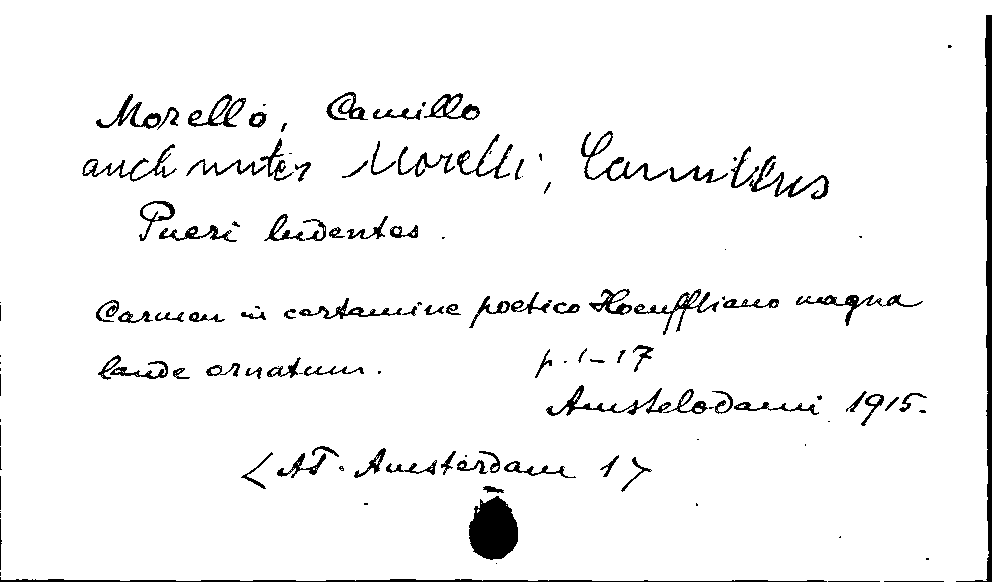 Morello, Camillo
auch unter Morelli, Camillus
Pueri ludentes.
Carmen in certamine poetico Hoeufftiano magna
laude ornatum. p. 1-17
Amstelodami 1915.
< AT. Amsterdam 1 >